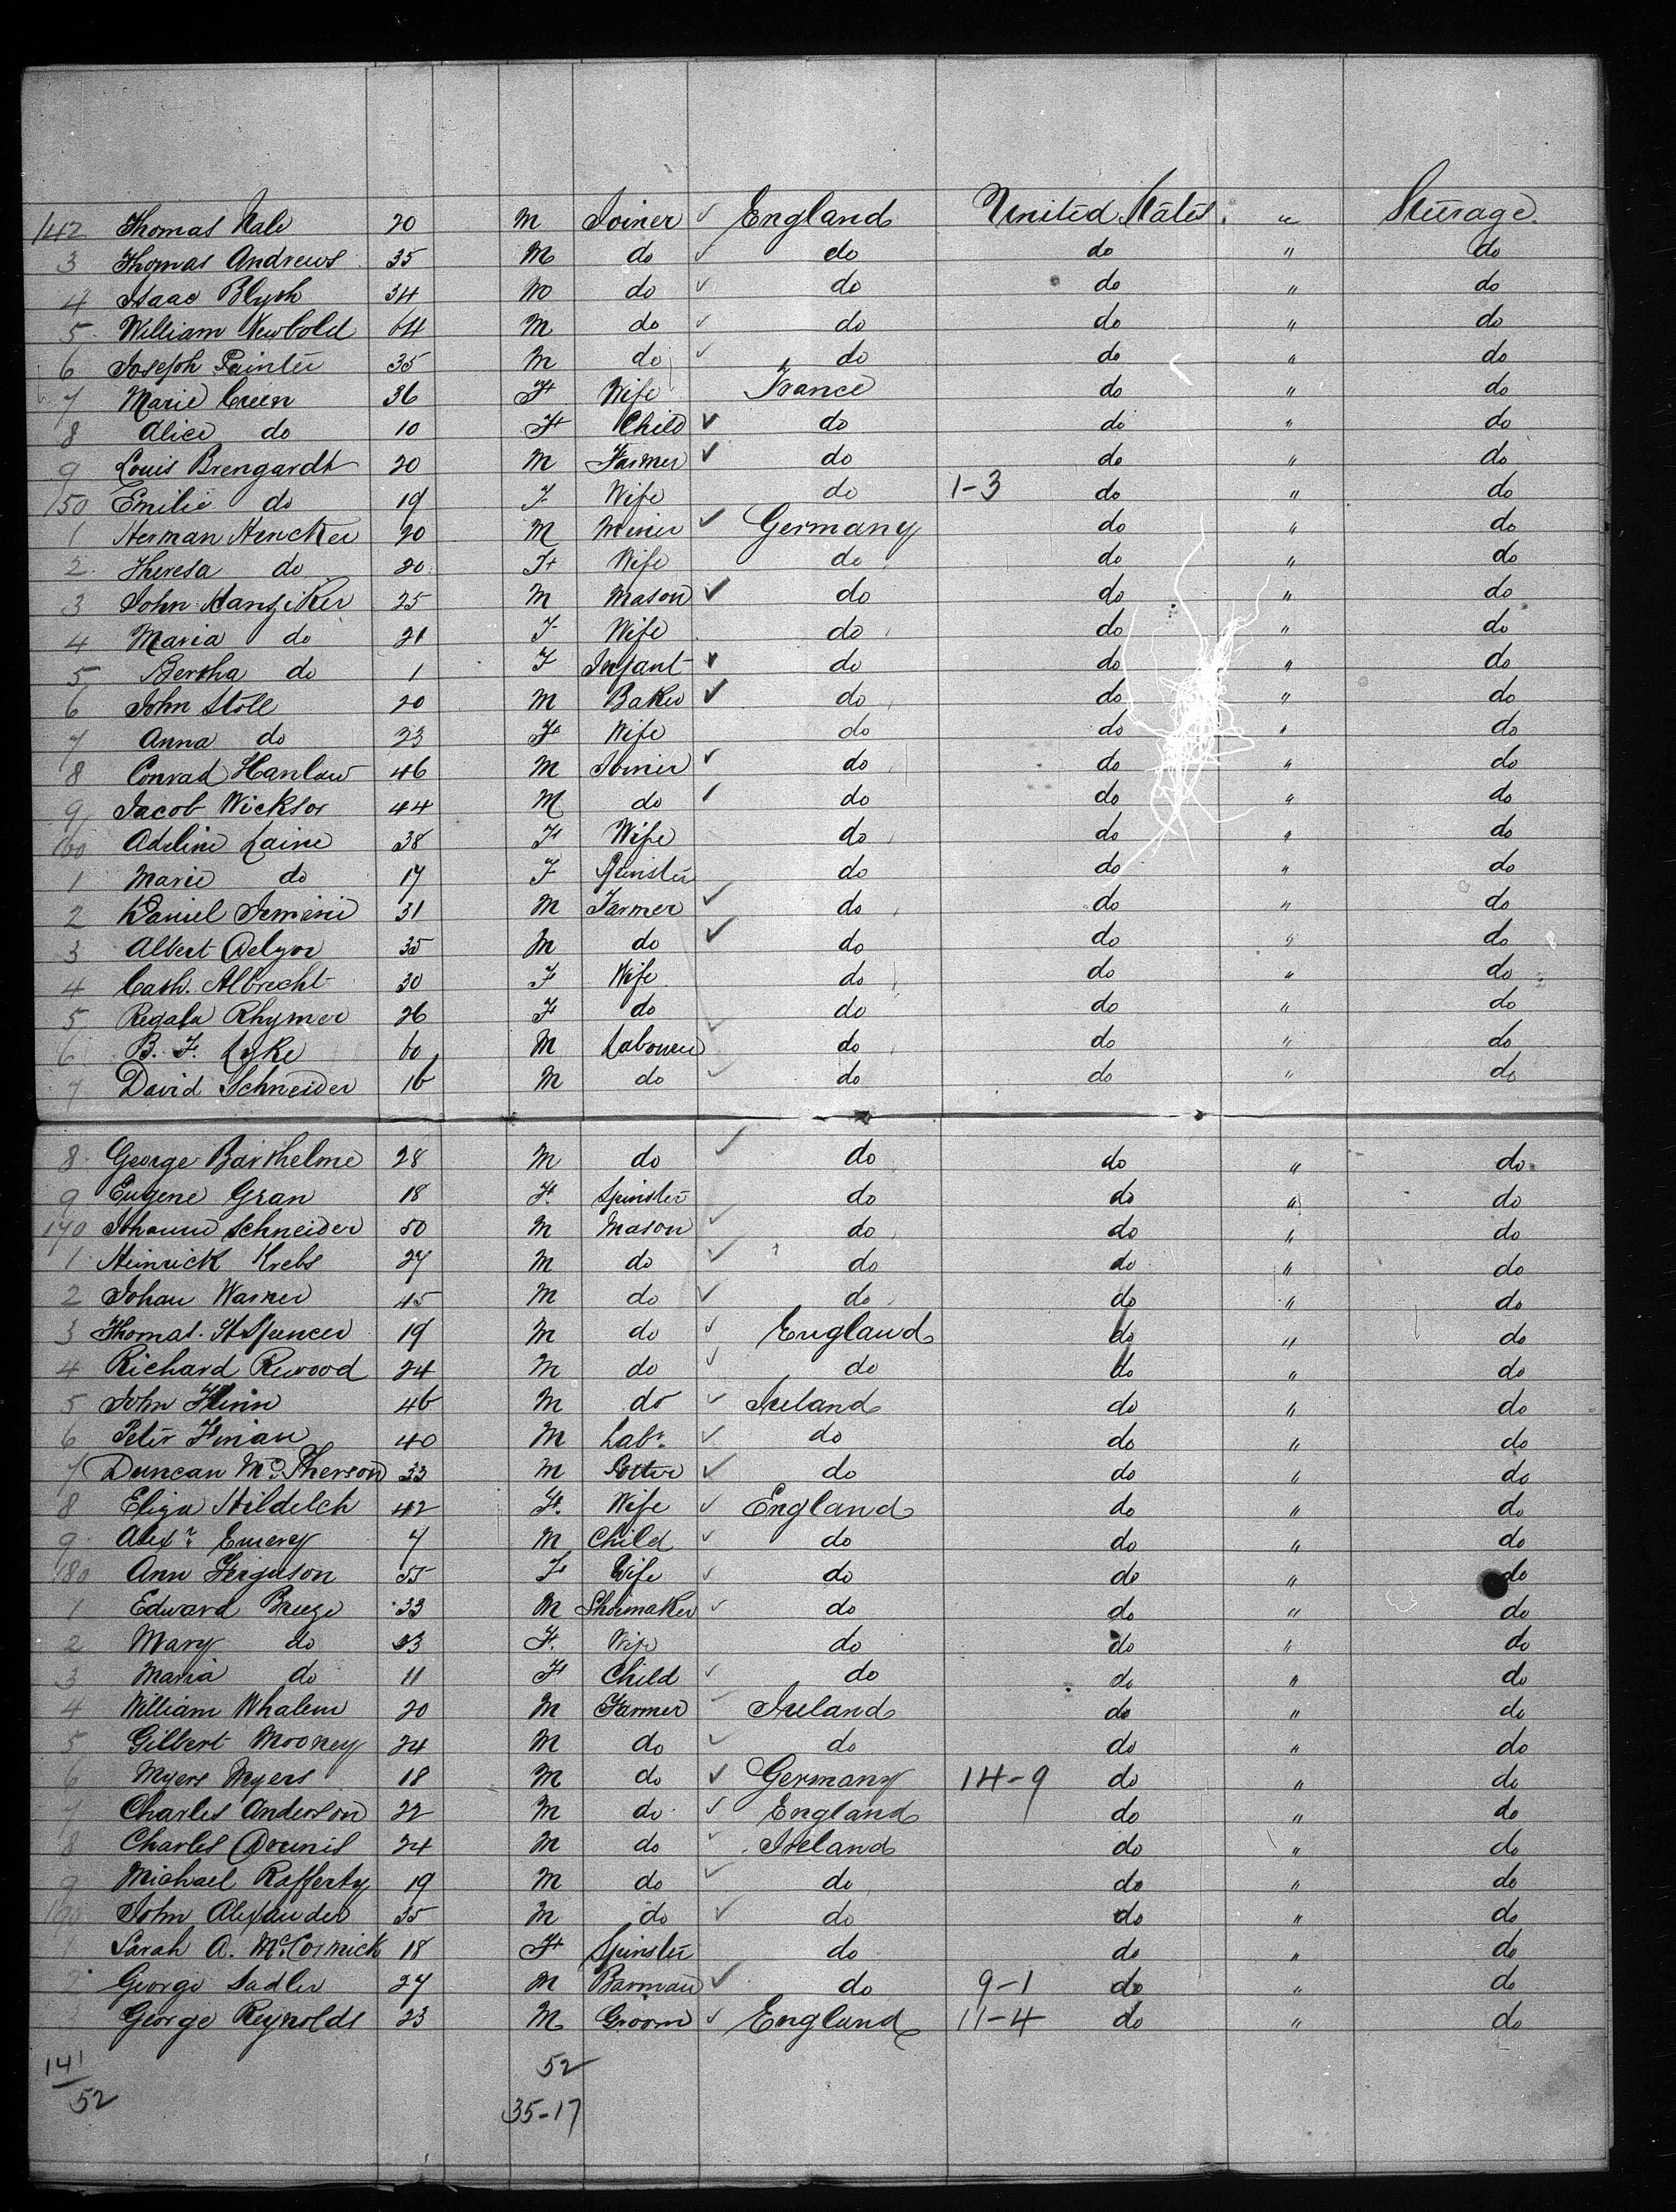 142 Thomas Hale 20 M Joiner ✓ England United States " Steerage
3 Thomas Andrews 35 M do ✓ do do " do
4 Isaac Blyth 34 M do ✓ do do " do
5 William Newbold 64 M do ✓ do do " do
6 Joseph Painter 35 M do ✓ do do " do
7 Marie Green 36 F Wife France do " do
8 Alice do 10 F Child ✓ do do " do
9 Louis Brengardt 20 M Farmer ✓ do do " do
150 Emilie do 19 F Wife do 1-3 do " do
1 Herman Hencker 20 M Miner ✓ Germany do " do
2 Theresa do 20 F Wife do do " do
3 John Hanziker 25 M Mason ✓ do do " do
4 Maria do 21 F Wife do do " do
5 Bertha do 1 F Infant ✓ do do " do
6 John Stoll 20 M Baker ✓ do do " do
7 Anna do 23 F Wife do do " do
8 Conrad Hanlaw 46 M Joiner ✓ do do " do
9 Jacob Wicksor 44 M do ✓ do do " do
160 Adeline Laine 38 F Wife do do " do
1 Marie do 17 F Spinster do do " do
2 Daniel 31 M Farmer ✓ do do " do
3 Albert 35 M do ✓ do do " do
4 Cath. Albrecht 30 F Wife do do " do
5 Regala Rhymer 26 F do do do " do
6 B. F. Lyke 60 M Labourer ✓ do do " do
7 David Schneider 16 M do ✓ do do " do
8 George Barthelme 28 M do ✓ do do " do
9 Eugene Gran 18 F. Spinster do do " do
170 Johann Schneider 50 M Mason ✓ do do " do
1 Heinrick Krebs 27 M do ✓ do do " do
2 Johan Warner 45 M do ✓ do do " do
3 Thomas. H Spencer 19 M do ✓ England do " do
4 Richard Rewood 24 M do ✓ do do " do
5 John Flinn 46 M do ✓ Ireland do " do
6 Peter Finian 40 M Labr. ✓ do do " do
7 Duncan McPherson 33 M Potter ✓ do do " do
8 Eliza Hildelch 42 F. Wife ✓ England do " do
9 Alexr. Emery 7 M Child ✓ do do " do
180 Ann Ferguson 55 F Wife ✓ do do " do
1 Edward Breeze 33 M Shoemaker ✓ do do " do
2 Mary do 33 F. Wife do do " do
3 Maria do 11 F Child ✓ do do " do
4 William Whalen 20 M Farmer ✓ Ireland do " do
5 Gilbert Mooney 24 M do ✓ do do " do
6 Myers Myers 18 M do ✓ Germany 14-9 do " do
7 Charles Anderson 22 M do ✓ England do " do
8 Charles 24 M do ✓ Ireland do " do
9 Michael Rafferty 19 M do ✓ do do " do
190 John Alexander 35 M do ✓ do do " do
1 Sarah A. McCormick 18 F Spinster do do " do
2 George Sadler 27 M Barman ✓ do 9-1 do " do
3 George Reynolds 23 M Groom ✓ England 11-4 do " do
141 52
52 35-17